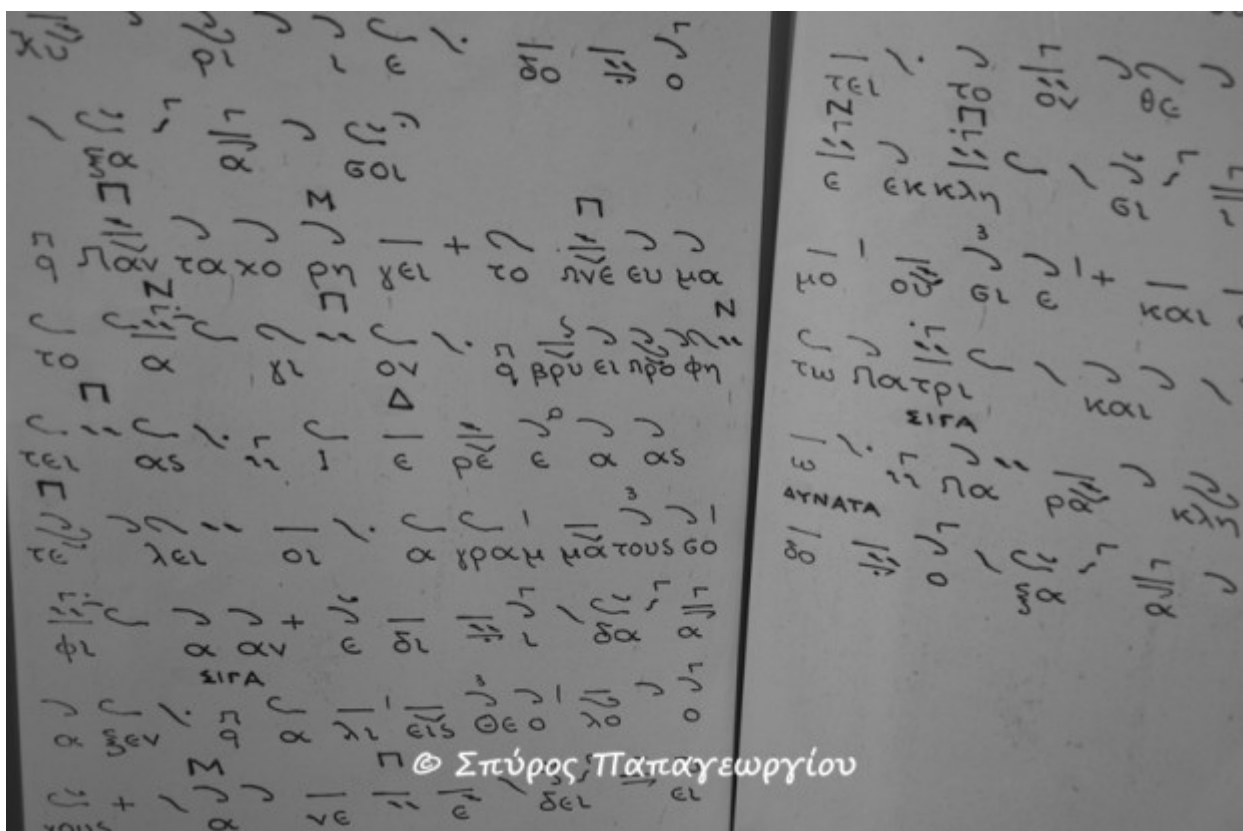 κυ ρι ι ε δο ο
ξα α σοι
Παν τα χο ρη γει το πνε ευ μα
το α γι ον βρυ ει προ φη
τει ας ι ε ρε ε α ας
τε λει οι α γραμ μα τους σο
φι α αν ε δι ι δα α
ΣΙΓΑ
α ξεν α λι εις θε ο λο ο
γους α νε ε δει ει
© Σπύρος Παπαγεωργίου
τει το ον θε
ε εκ κλη σι ι
μο ου σι ε και
τω πα τρι και
ΣΙΓΑ
ω πα ρα κλη
ΔΥΝΑΤΑ
δο ο ξα α